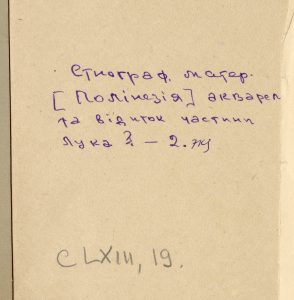 Етнограф. матер.
[Полінезія] акварел
та відиток частини
лука ? — 2.
CLXIII, 19.